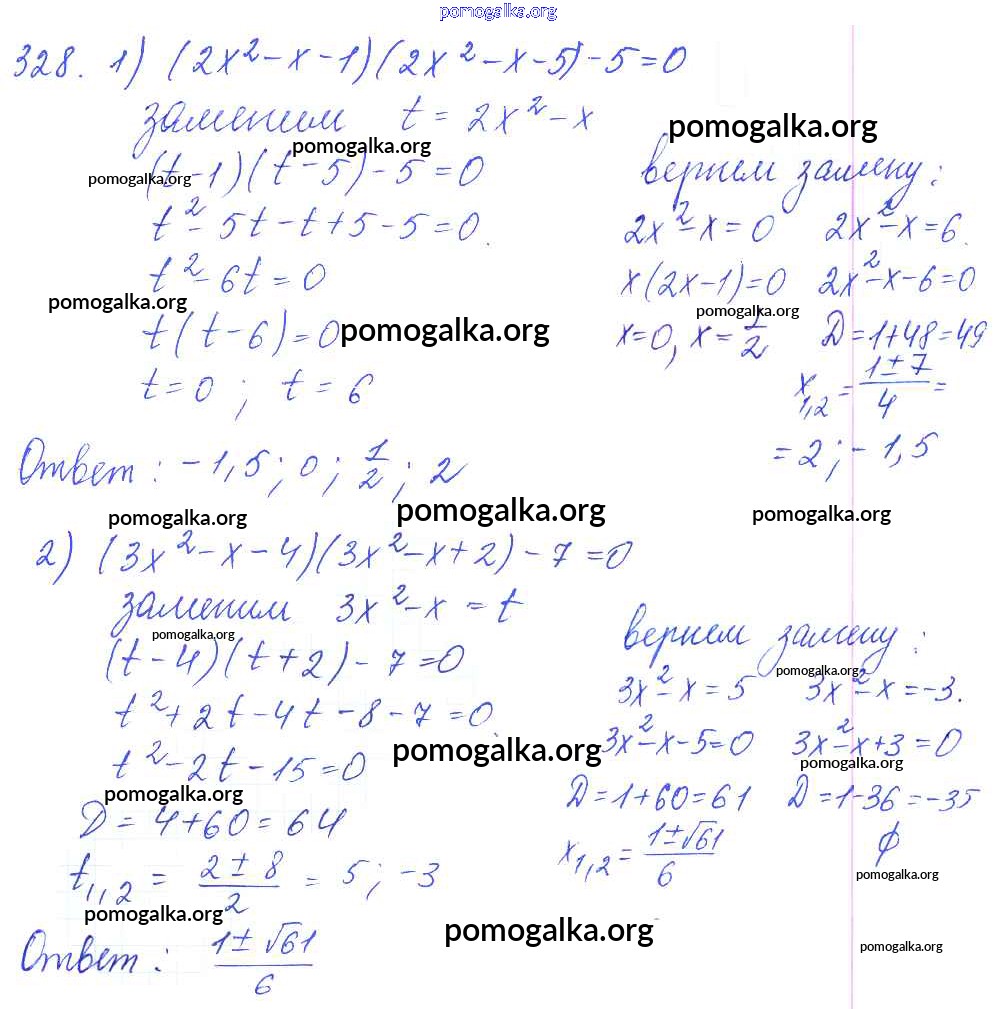 pomogalka.org
328. 1) (2x²-x-1)(2x²-x-5)-5=0
заменим t = 2x²-x
pomogalka.org
pomogalka.org
pomogalka.org (t-1)(t-5)-5=0
t²-5t-t+5-5=0.
t²-6t=0
pomogalka.org
t(t-6)=0 pomogalka.org
t=0; t=6
вернем замену:
2x²-x=0 2x²-x=6.
x(2x-1)=0 2x²-x-6=0
pomogalka.org
x=0, x=1/2 D=1+48=49
x1,2 = (1±7)/4 =
=2; -1,5
Ответ: -1,5; 0; 1/2; 2
pomogalka.org pomogalka.org pomogalka.org
2) (3x²-x-4)(3x²-x+2)-7=0
заменим 3x²-x=t
pomogalka.org
(t-4)(t+2)-7=0
t²+2t-4t-8-7=0.
t²-2t-15=0
pomogalka.org
pomogalka.org
D=4+60=64
t1,2 = (2±8)/2 = 5; -3
pomogalka.org
вернем замену:
pomogalka.org
3x²-x=5 3x²-x=-3.
3x²-x-5=0 3x²-x+3=0
pomogalka.org
D=1+60=61 D=1-36=-35
x1,2 = (1±√61)/6 ϕ
pomogalka.org
Ответ: (1±√61)/6
pomogalka.org
pomogalka.org